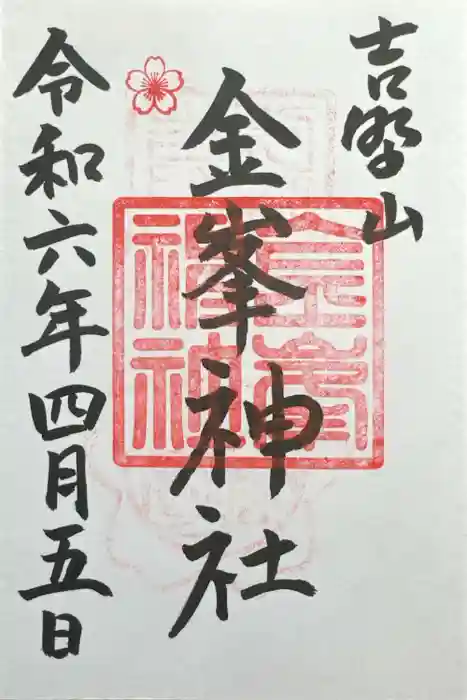 吉野山
金峯神社
金峯
神社
令和六年四月五日